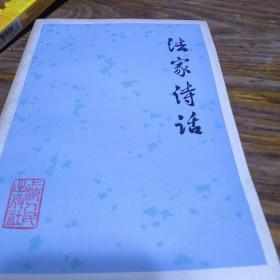 法家诗话
上海人民
出版社